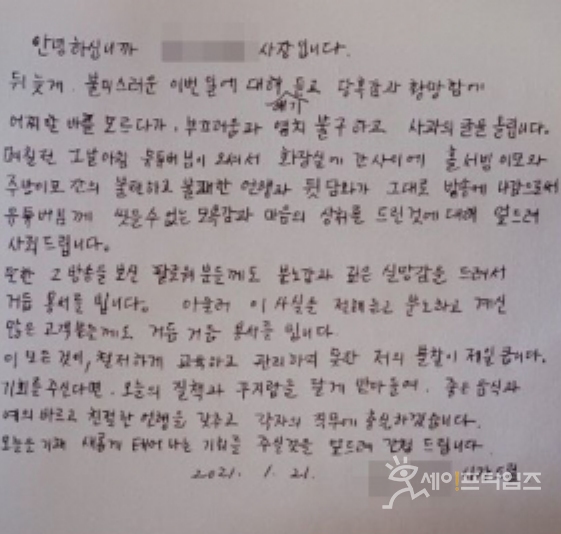 안녕하십니까 사장입니다.
뒤늦게 불미스러운 이번일에 대해 얘기 듣고 당혹감과 황망함에
어찌할 바를 모르다가, 부끄러움과 염치 불구하고 사과의 글을 올립니다.
며칠전 그날아침 유튜버님이 오셔서 화장실에 간사이에 홀서빙 이모와
주방이모 간의 불편하고 불쾌한 언행과 뒷담화가 그대로 방송에 나감으로써
유튜버님께 씻을수 없는 모욕감과 마음의 상처를 드린것에 대해 엎드려
사죄드립니다.
또한 그방송을 보신 팔로워분들께도 분노감과 깊은 실망감을 드려서
거듭 용서를 빕니다. 아울러 이 사실을 전해듣고 분노하고 계신
많은 고객분들께도 거듭 거듭 용서를 빕니다
이 모든것이, 철저하게 교육하고 관리하지 못한 저의 불찰이 제일 큽니다.
기회를 주신다면, 오늘의 질책과 꾸지람을 달게 받아들여, 좋은 음식과
예의 바르고 친절한 언행을 갖추고 각자의 직무에 충실하겠습니다.
오늘을 기해 새롭게 태어나는 기회를 주실것을 엎드려 간청 드립니다.
2021. 1. 21.
세이프타임즈